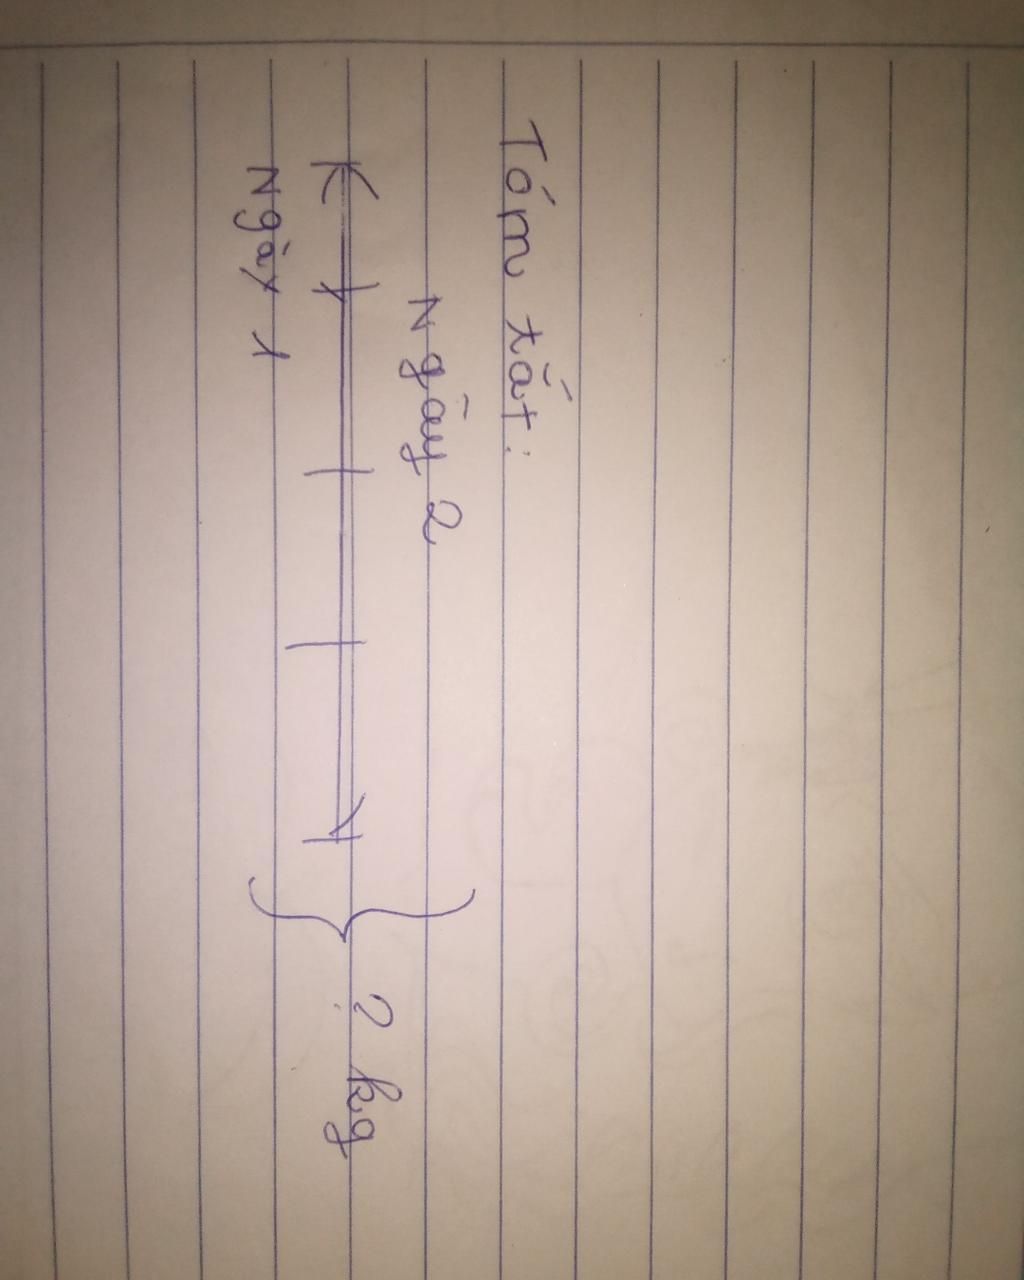 Tóm tắt:
Ngày 2
? kg
Ngày 1